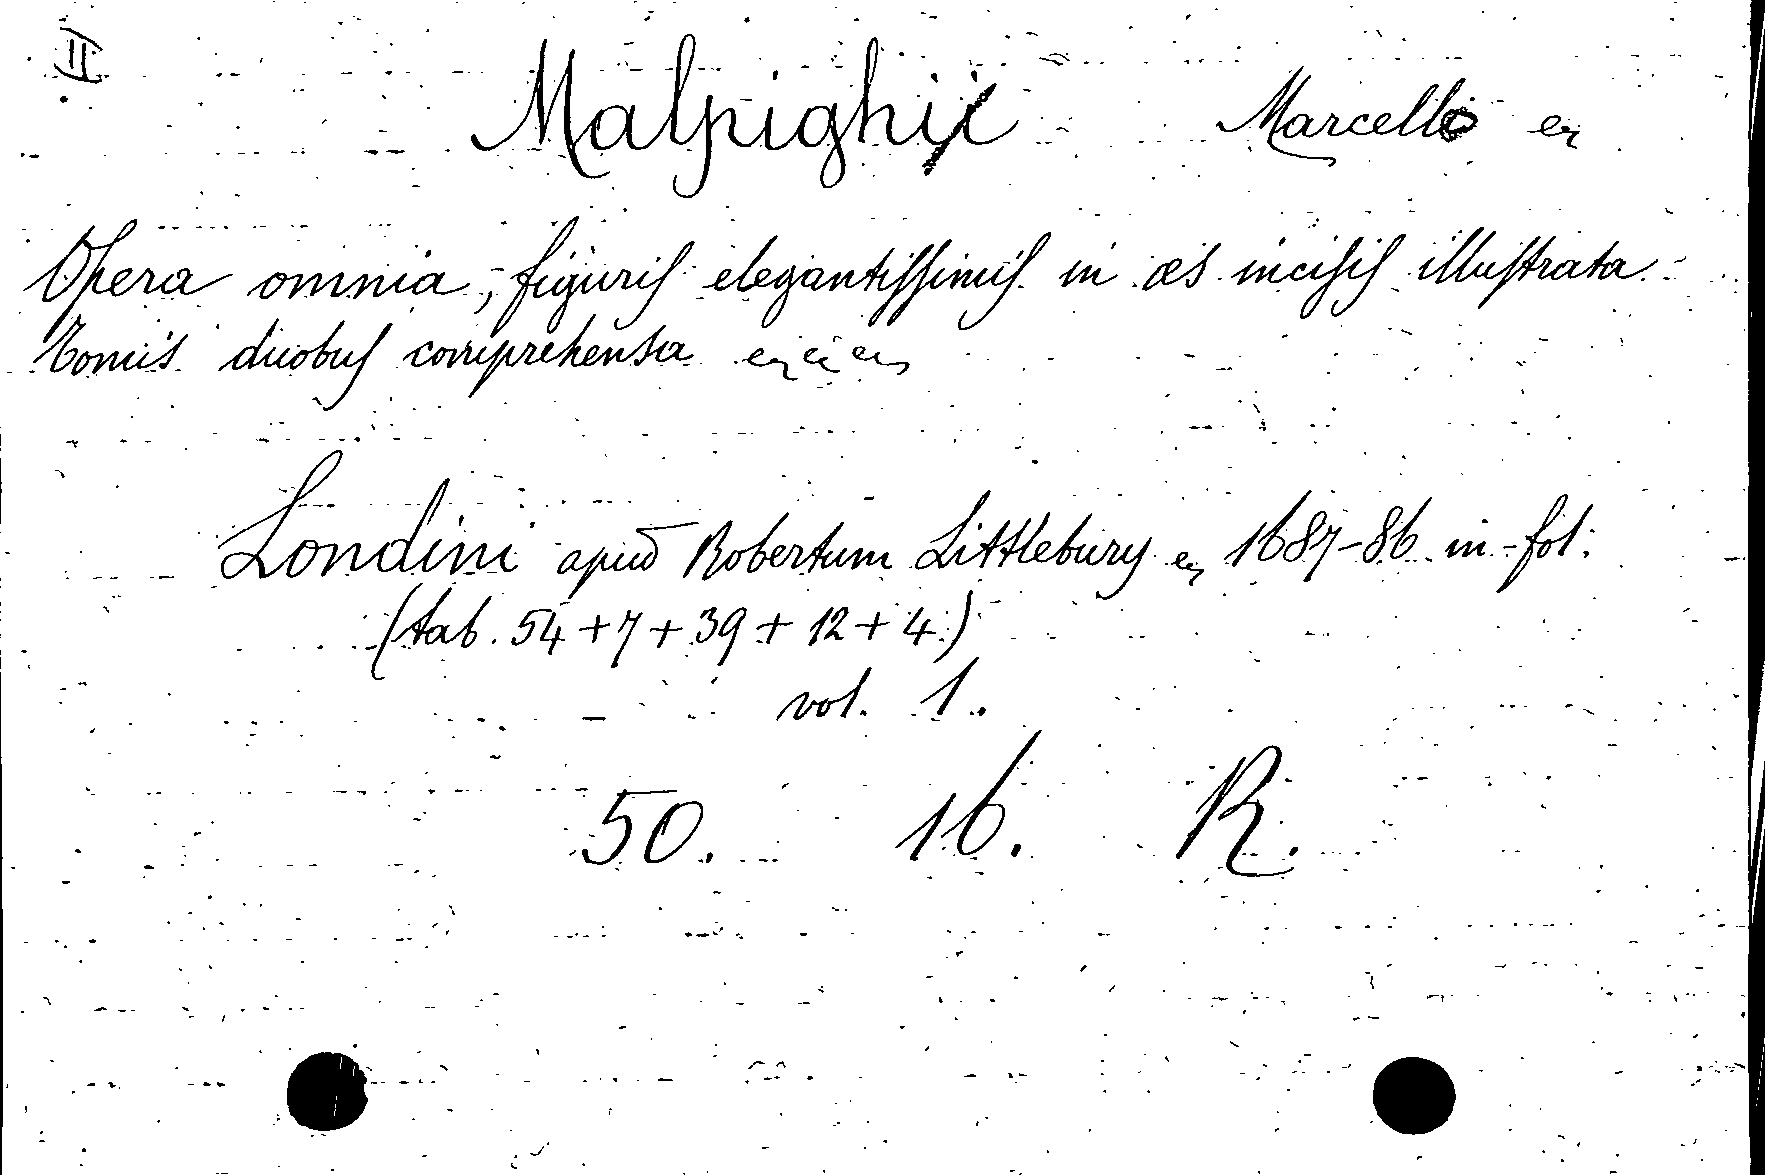 II
Malpighi Marcello ec
Opera omnia, figuris elegantissimis in æs incisis illustrata
Tomis duobus comprehensa ec ec ec
Londini apud Robertum Littlebury ec 1687-86 in-fol:
(tab. 54+7+39+12+4.)
vol. 1.
50. 16. R.